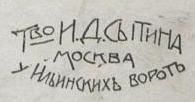 Т-во И.Д.СЫТИНА
МОСКВА
У ИЛЬИНСКИХЪ ВОРОТЪ